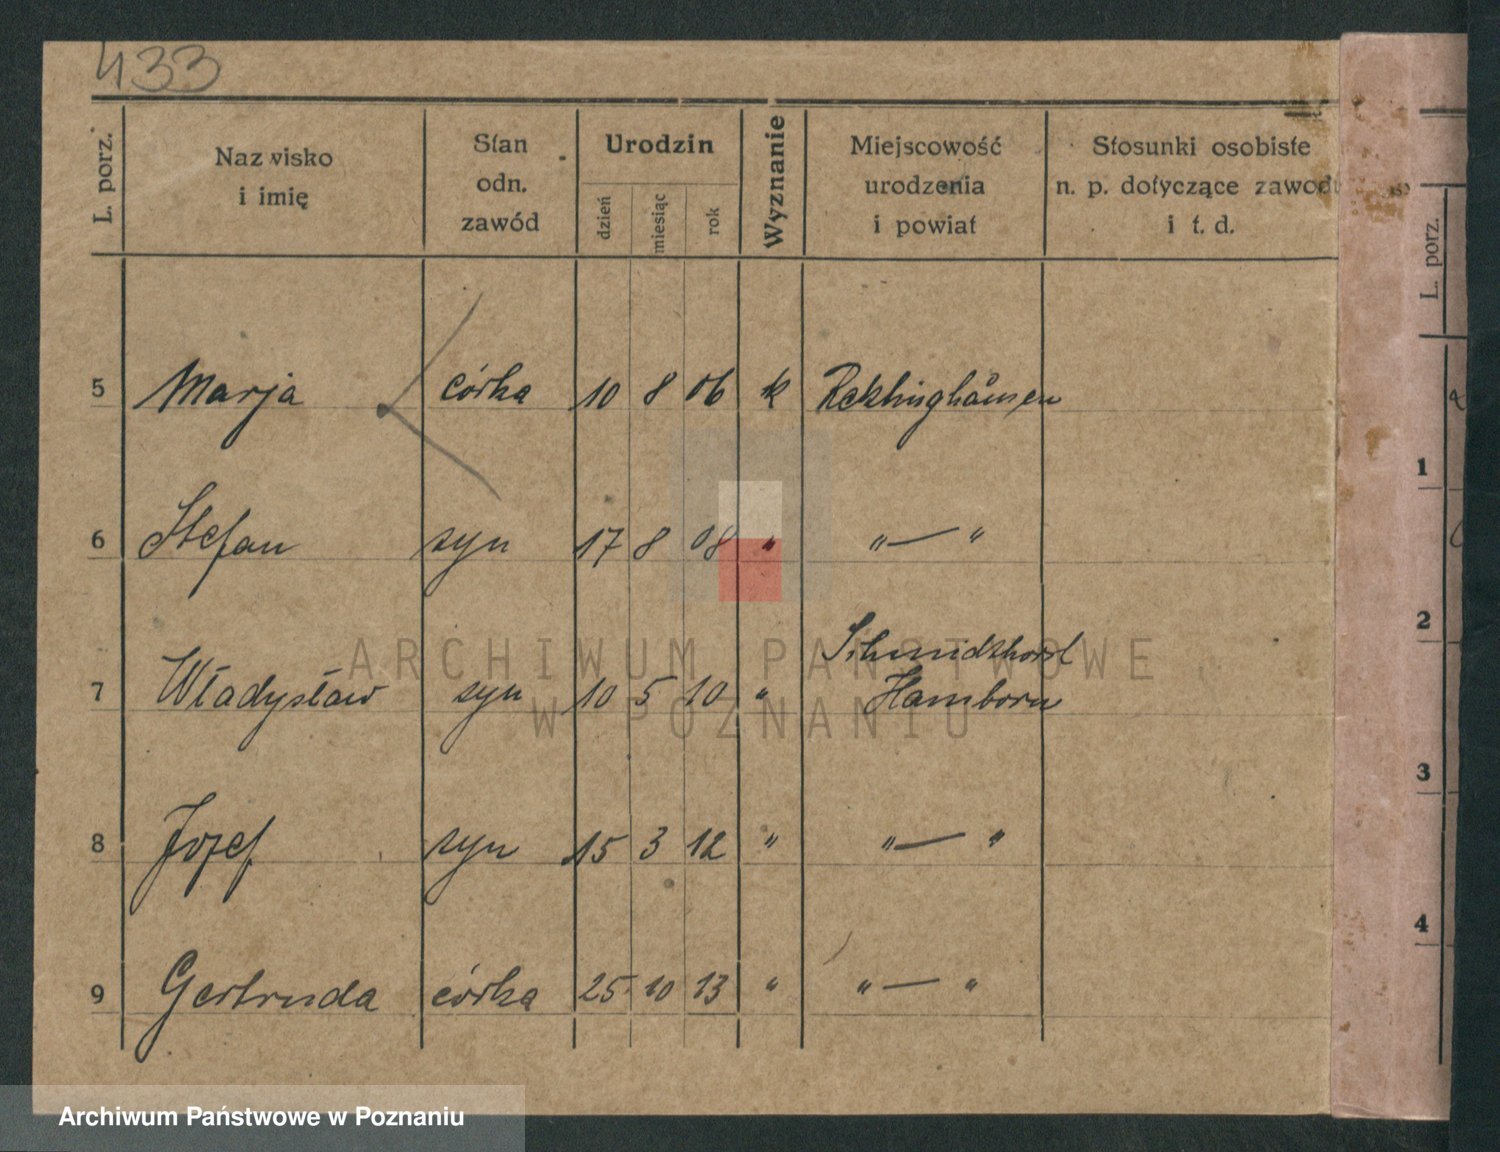 433
L. porz.
Nazwisko
i imię
Stan
odn.
zawód
Urodzin
dzień
miesiąc
rok
Wyznanie
Miejscowość
urodzenia
i powiat
Stosunki osobiste
n. p. dotyczące zawodu
i t. d.
5 Marja córka 10 8 06 k Recklinghausen
6 Stefan syn 17 8 08 " "—"
Schmidthorst
7 Władysław syn 10 5 10 " Hamborn
8 Jozef syn 15 3 12 " "—"
9 Gertruda córka 25 10 13 " "—"
L. porz.
1
2
3
4
ARCHIWUM PAŃSTWOWE
W POZNANIU
Archiwum Państwowe w Poznaniu